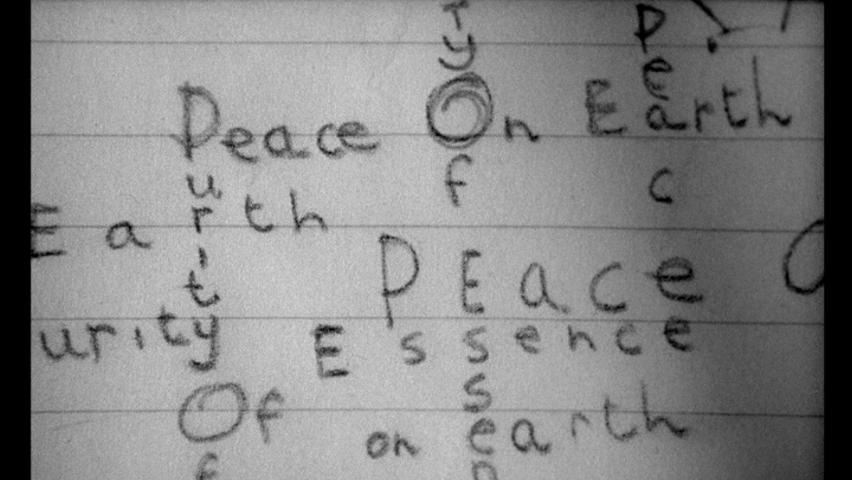 r P
y e
Peace On Earth
u f c
Earth
i
t PEace
urity Essence
s
Of on earth
f